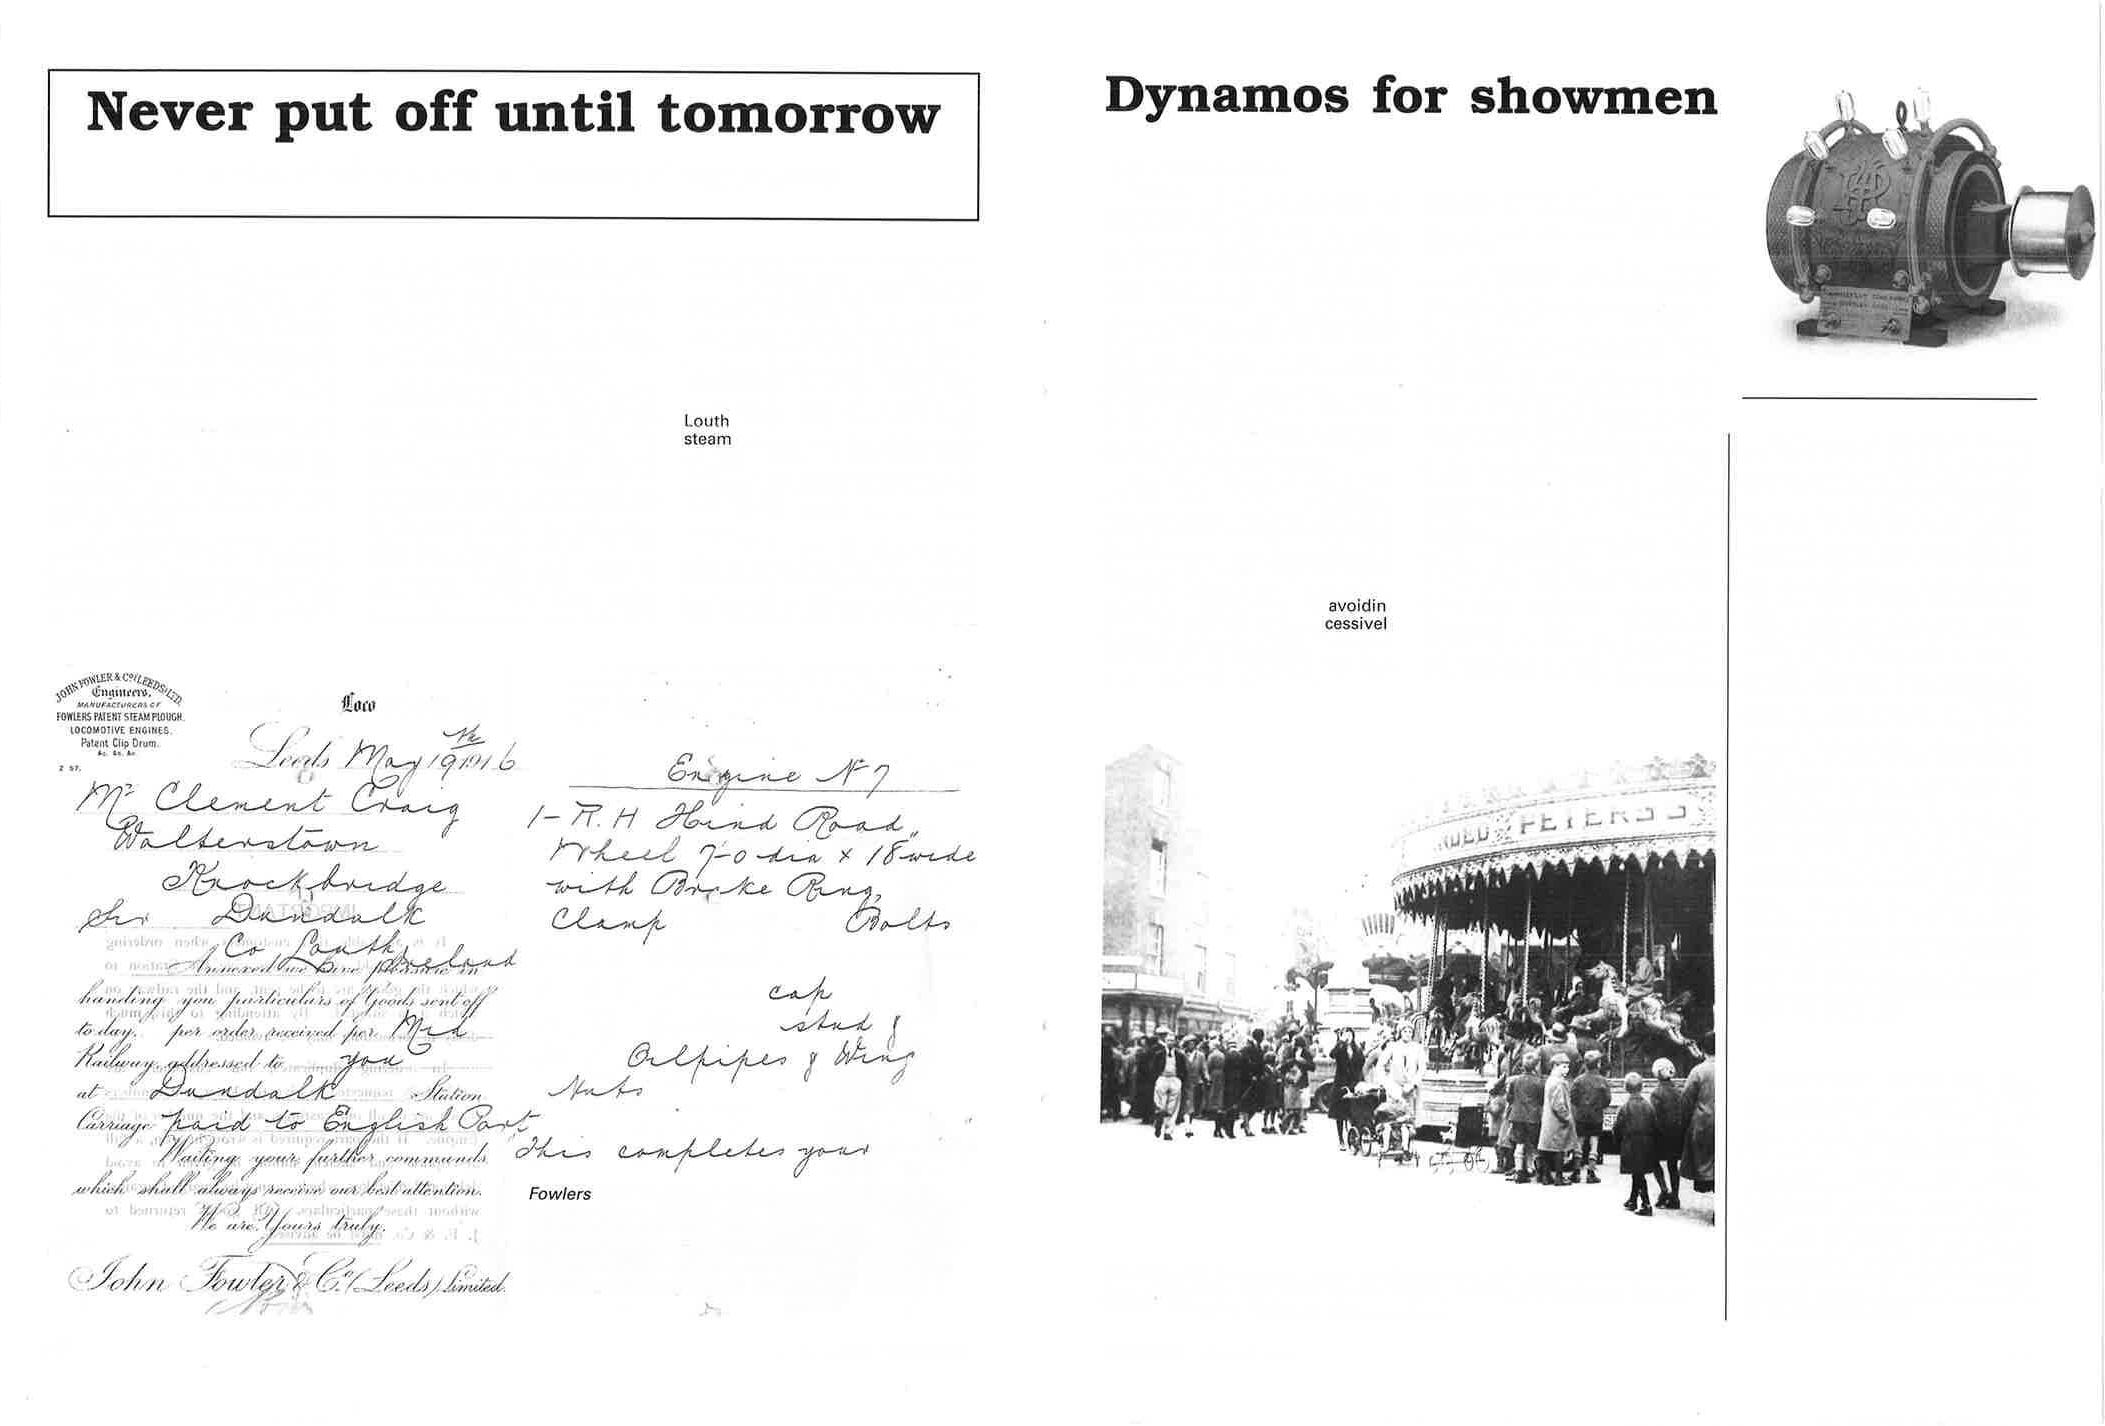 Never put off until tomorrow
Louth
steam
JOHN FOWLER & CO. (LEEDS) LTD.
Engineers,
MANUFACTURERS OF
FOWLERS PATENT STEAM PLOUGH.
LOCOMOTIVE ENGINES.
Patent Clip Drum.
&c. &c. &c.
Loco
Leeds May 19th 1916
Mr Clement Craig
Walterstown
Knockbridge
Sir Dundalk
Co Louth Ireland
Annexed we have pleasure in
handing you particulars of Goods sent off
to day, per order received per Mid
Railway, addressed to you
at Dundalk Station
Carriage paid to English Port
Waiting your further commands
which shall always receive our best attention.
We are, Yours truly,
John Fowler & Co. (Leeds) Limited.
Engine No 7
1 - R.H Hind Road
Wheel 7-0 dia x 18" wide
with Brake Ring,
Clamp Bolts
cap
stud &
Oilpipes & Wing
Nuts
This completes your
Fowlers
Dynamos for showmen
avoidin
cessivel
PETERS